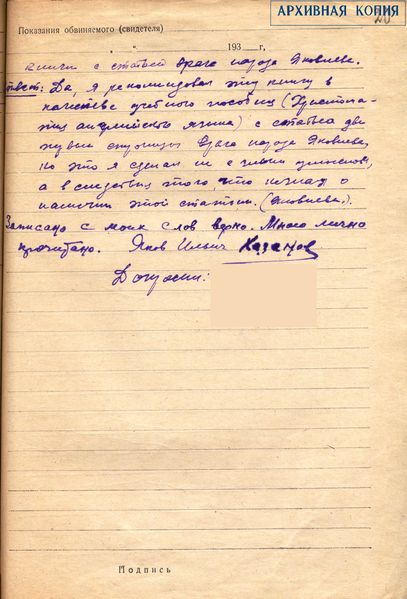 АРХИВНАЯ КОПИЯ
Показания обвиняемого (свидетеля)
„ “ 193 г.
книги с статьей врага народа Яковлева.
Ответ: Да, я рекомендовал эту книгу в
качестве учебного пособия (Христома-
тия английского языка) с статьей
врага народа Яковлева,
но это я сделал не с злым умыслом,
а в следствии того, что не знал о
наличии этой статьи. (Яковлева).
Записано с моих слов верно. Мною лично
прочитано. Яков Ильич Казанов
Допросил:
Подпись